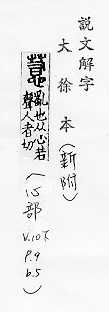 説文解字
大徐本(新附)
惹 亂也从心若
聲人者切
(心部 V.10下 p.9 b.5)